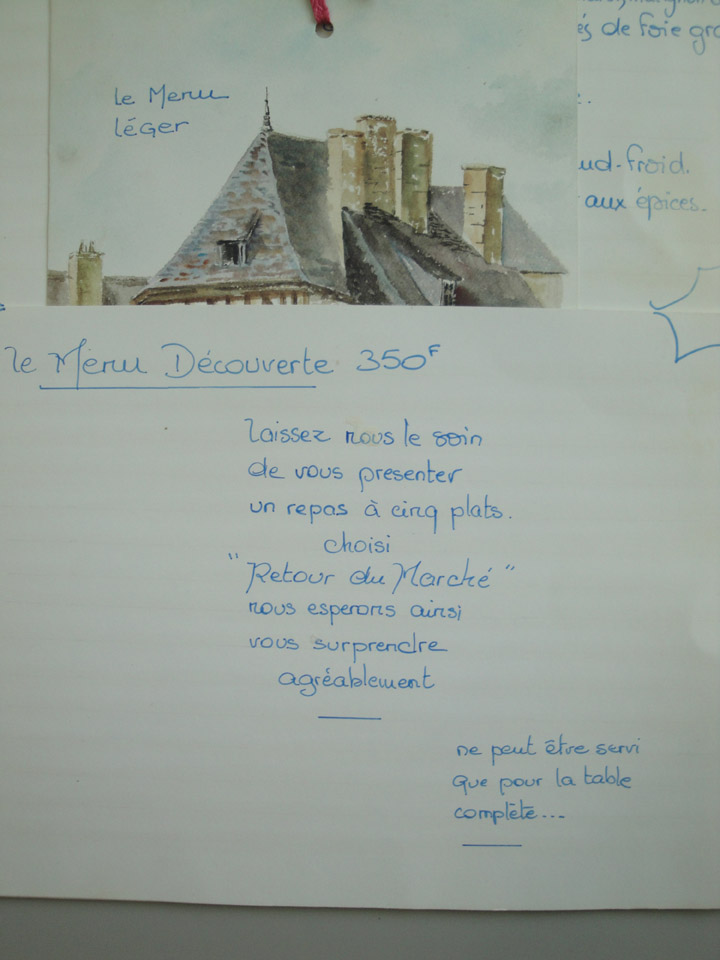 és de foie gra
ud-froid.
aux épices.
le Menu
léger
le Menu Découverte 350F
laissez nous le soin
de vous presenter
un repas à cinq plats.
choisi
"Retour du Marché"
nous esperons ainsi
vous surprendre
agréablement
ne peut être servi
que pour la table
complète...